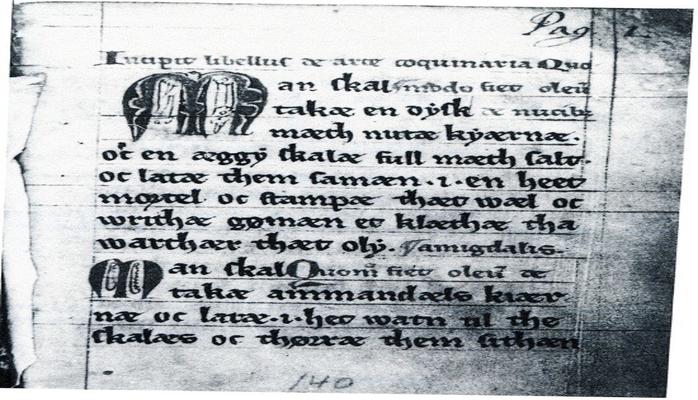 Pag 1.
Incipit libellus de arte coquinaria Quo
Man skal modo fiet oleu
takæ en dysk de nucibz
mæth nutæ kyærnæ.
oc en æggy skalæ full mæth salt.
oc latæ them samæn .i. en heet
mortel oc stampæ thæt wæl oc
writhæ gømæn et klæthæ tha
warthær thæt oly. amigdalis.
Man skal Quom fiet oleu de
takæ ammandæls kiær
næ oc latæ .i. het watn til the
skalæs oc thørræ them sithæn
140